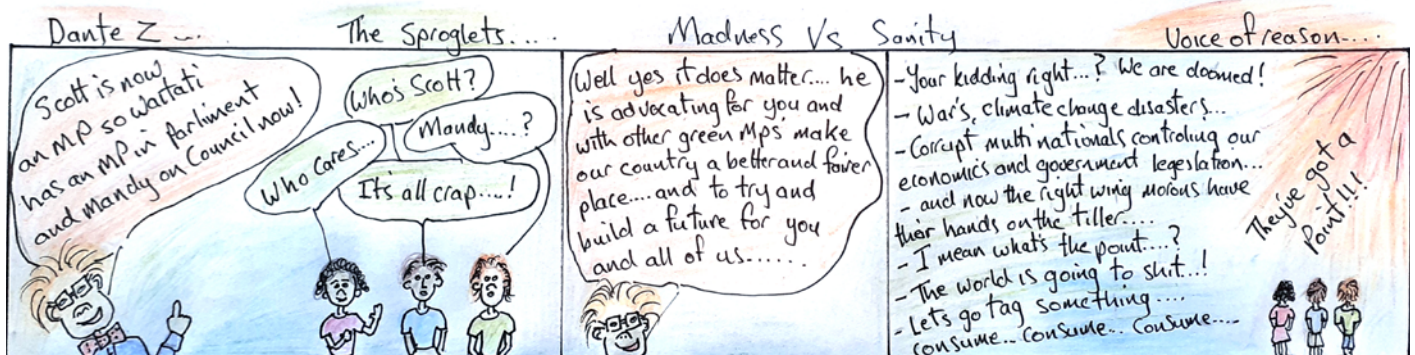 Dante Z ....
The Sproglets.....
Madness Vs Sanity
Voice of reason....
Scott is now
an MP so Waitati
has an MP in parliment
and Mandy on Council now!
Who's Scott?
Mandy....?
Who cares....
It's all crap....!
Well yes it does matter.... he
is advocating for you and
with other green MPs' make
our country a better and fairer
place.... and to try and
build a future for you
and all of us......
- Your kidding right...? We are doomed!
- War's, climate change disasters...
- Corrupt multi nationals controling our
economics and government legeslation...
- and now the right wing morons have
their hands on the tiller.....
- I mean what's the point....?
- The world is going to shit..!
- Lets go tag something....
consume... consume... consume....
They've got a
Point!!!